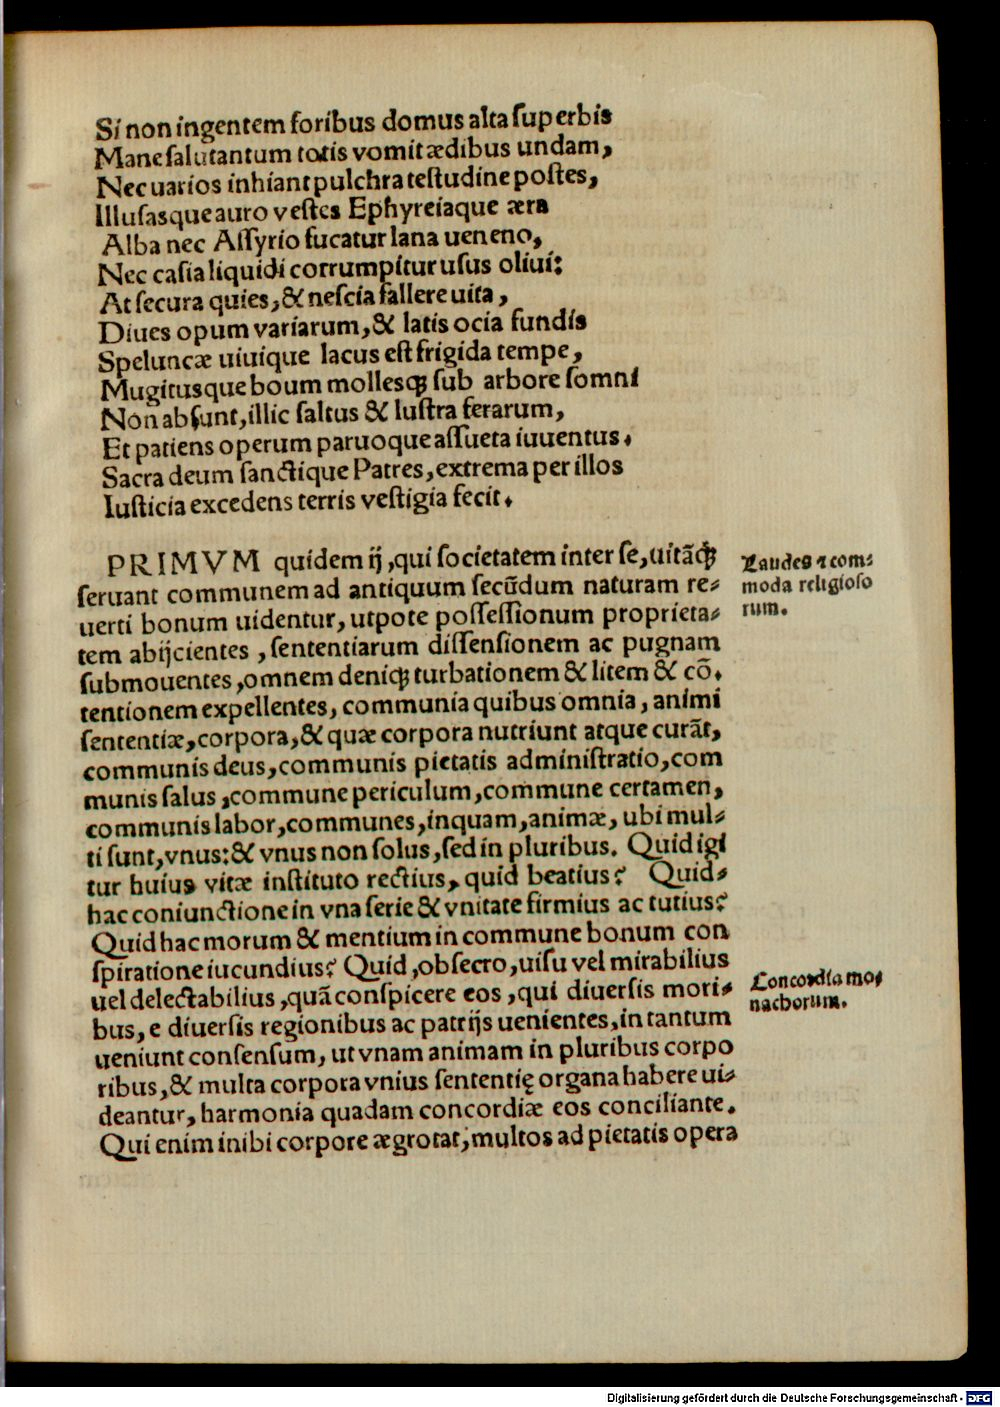 Si non ingentem foribus domus alta ſuperbis
Mane ſalutantum totis vomit ædibus undam,
Nec uarios inhiant pulchra teſtudine poſtes,
Illuſasque auro veſtes Ephyreiaque æra
Alba nec Aſſyrio fucatur lana ueneno,
Nec caſia liquidi corrumpitur uſus oliui:
At ſecura quies, & neſcia fallere uita,
Diues opum variarum, & latis ocia fundis
Speluncæ uiuique lacus eſt frigida tempe,
Mugitusque boum mollesqꝫ ſub arbore ſomni
Non abſunt, illic ſaltus & luſtra ferarum,
Et patiens operum paruoque aſſueta iuuentus.
Sacra deum ſanctique Patres, extrema per illos
Iuſticia excedens terris veſtigia fecit.
PRIMVM quidem ij, qui ſocietatem inter ſe, uitãqꝫ
ſeruant communem ad antiquum ſecũdum naturam re⸗
uerti bonum uidentur, utpote poſſeſſionum proprieta⸗
tem abijcientes, ſententiarum diſſenſionem ac pugnam
ſubmouentes, omnem deniqꝫ turbationem & litem & cõ.
tentionem expellentes, communia quibus omnia, animi
ſententiæ, corpora, & quæ corpora nutriunt atque curãt,
communis deus, communis pietatis adminiſtratio, com
munis ſalus, commune periculum, commune certamen,
communis labor, communes, inquam, animæ, ubi mul⸗
ti ſunt, vnus: & vnus non ſolus, ſed in pluribus. Quid igi
tur huius vitæ inſtituto rectius, quid beatius? Quid⸗
hac coniunctione in vna ſerie & vnitate firmius ac tutius?
Quid hac morum & mentium in commune bonum con
ſpiratione iucundius? Quid, obſecro, uiſu vel mirabilius
uel delectabilius, quã conſpicere eos, qui diuerſis mori⸗
bus, e diuerſis regionibus ac patrijs uenientes, in tantum
ueniunt conſenſum, ut vnam animam in pluribus corpo
ribus, & multa corpora vnius ſententię organa habere ui⸗
deantur, harmonia quadam concordiæ eos conciliante.
Qui enim inibi corpore ægrotat, multos ad pietatis opera
Laudes ⁊ com⸗
moda religioſo
rum.
Concordia mo⸗
nachorum.
Digitalisierung gefördert durch die Deutsche Forschungsgemeinschaft - DFG